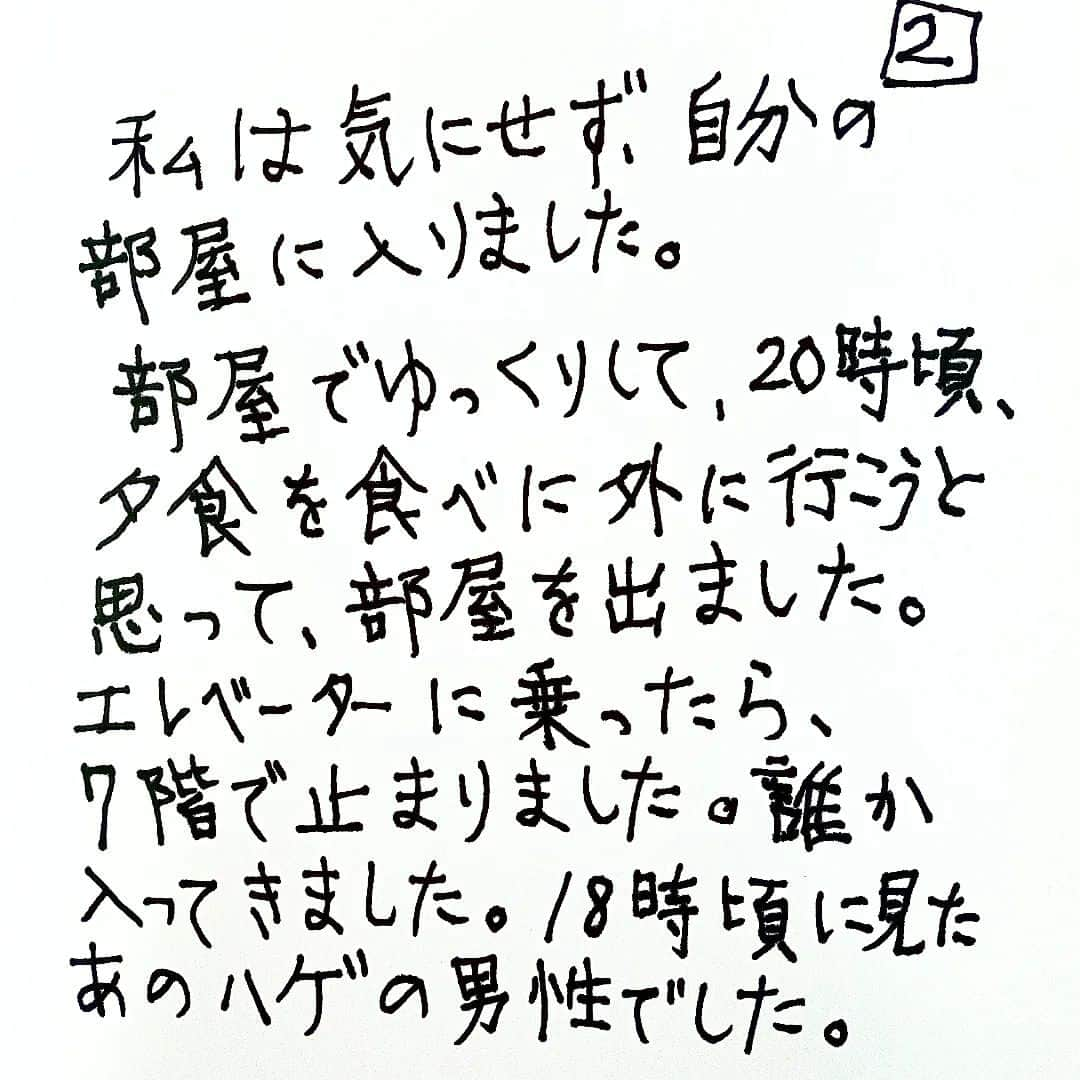 2
私は気にせず、自分の
部屋に入りました。
部屋でゆっくりして、20時頃、
夕食を食べに外に行こうと
思って、部屋を出ました。
エレベーターに乗ったら、
7階で止まりました。誰か
入ってきました。18時頃に見た
あのハゲの男性でした。